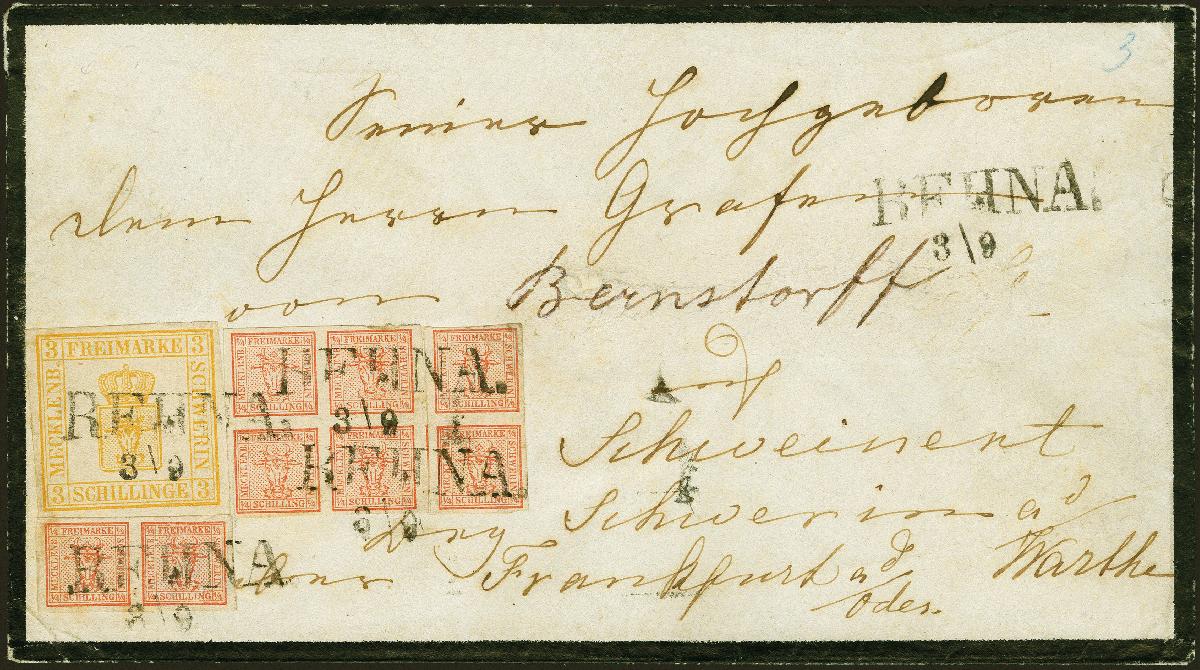 3
Seiner Hochgeboren
dem Herrn Grafen
REHNA.
3/9
von Bernstorff
auf
Schweinert
Schwerin a/d Warthe
über Frankfurt a/d Oder.
3 FREIMARKE 3
MECKLENB.
SCHWERIN
3 SCHILLINGE 3
REHNA.
3/9
4/4 FREIMARKE 4/4
MECKLENB.
SCHWERIN
4/4 SCHILLING 4/4
REHNA.
3/9
REHNA.
3/9
REHNA
3/9